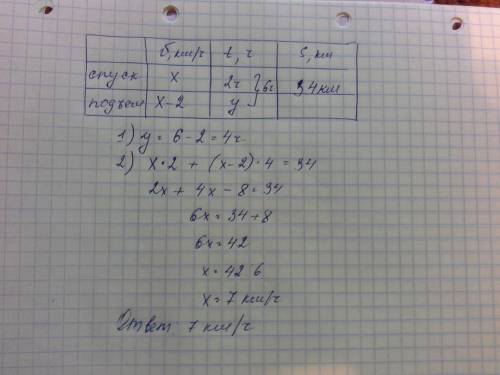 v, км/ч t, ч S, км
спуск x 2ч } 6ч 34 км
подъем x-2 y
1) y = 6 - 2 = 4ч
2) x·2 + (x-2)·4 = 34
2x + 4x - 8 = 34
6x = 34 + 8
6x = 42
x = 42 6
x = 7 км/ч
Ответ 7 км/ч